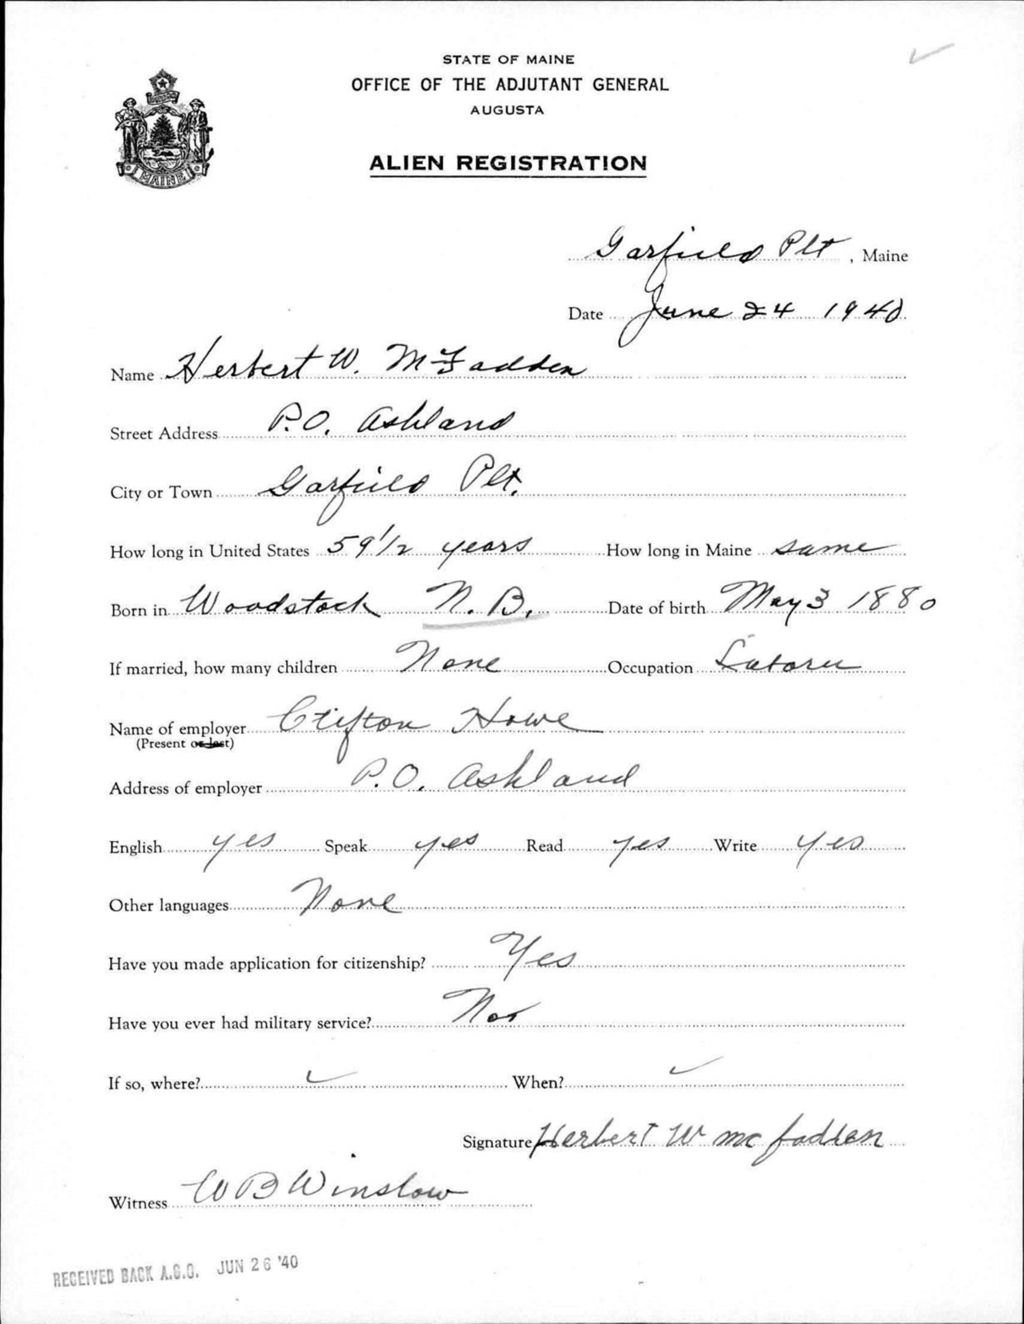 STATE OF MAINE
OFFICE OF THE ADJUTANT GENERAL
AUGUSTA
ALIEN REGISTRATION
MAINE
Garfield Plt, Maine
Date June 24 1940
Name Herbert W. McFadden
Street Address P.O. Ashland
City or Town Garfield Plt.
How long in United States 59 1/2 years How long in Maine same
Born in Woodstock N.B. Date of birth May 3 1880
If married, how many children None Occupation
Name of employer Clifton Howe
(Present or last)
Address of employer P.O. Ashland
English yes Speak yes Read yes Write yes
Other languages None
Have you made application for citizenship? Yes
Have you ever had military service? No
If so, where? When?
Signature Herbert W mcfadden
Witness W B Winslow
RECEIVED BACK A.G.O. JUN 26 '40